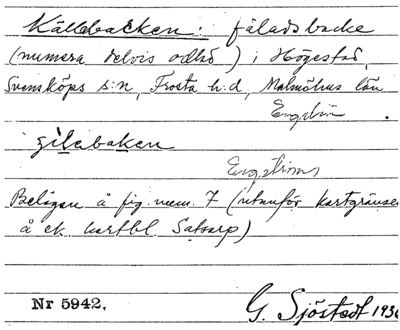 Källebacken: fäladsbacke
(numera delvis odlad) i Högestad,
Svensköps s:n, Frosta h:d, Malmöhus län
.
Engströms
Belägen å fig. num. 7 (utanför kartgränsen
å ek. kartbl. Satsarp)
Nr 5942.
G. Sjöstedt 1936